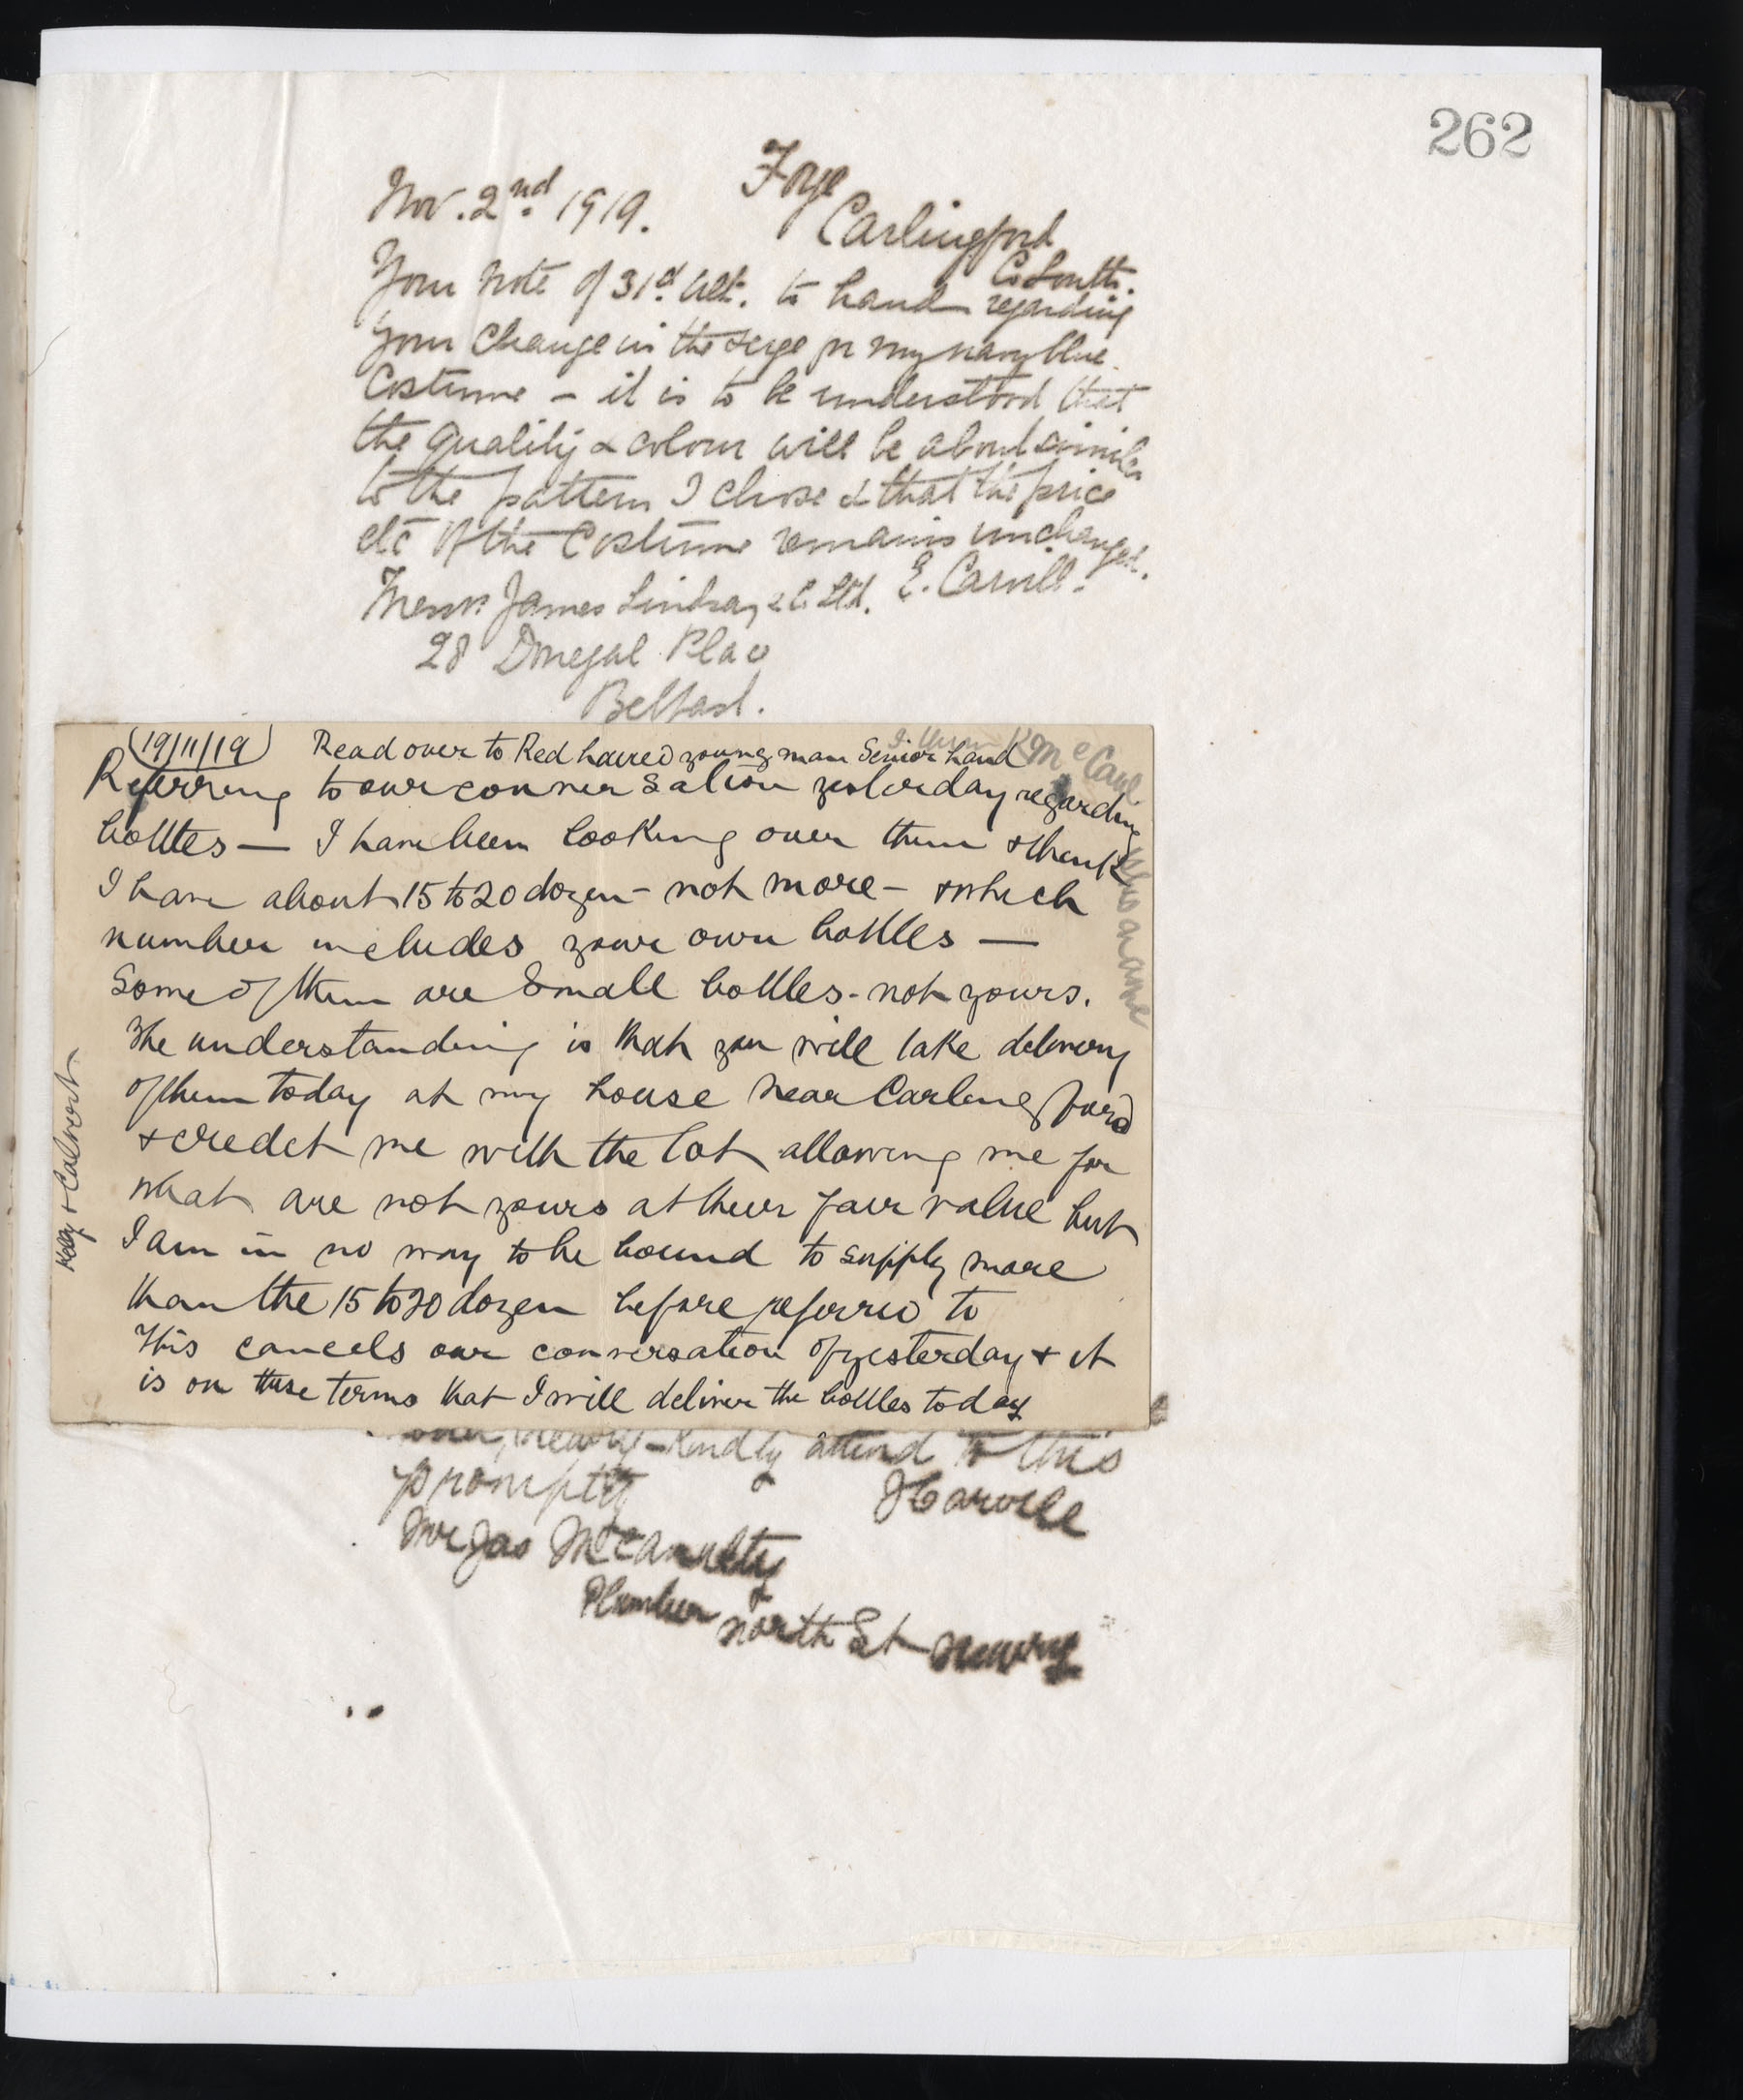 262
Foye
Nov. 2nd. 1919.
Carlingford
Co Louth.
Your note of 31st. ult. to hand regarding
your change in the serge for my navy blue
Costume – it is to be understood that
the quality & colour will be about similar
to the pattern I chose & that the price
etc of the Costume remains unchanged.
E. Carvill.
Messrs James Lindsay & Co Ltd.
28 Donegal Place
Belfast.
(19/11/19) Read over to Red haired young man Senior hand
McCaul
Referring to our conversation yesterday regarding
bottles — I have been looking over them & think
I have about 15 to 20 dozen – not more – & which
number includes your own bottles —
Some of them are Small bottles – not yours.
The understanding is that you will take delivery
of them today at my house near Carlingford
& credit me with the lot allowing me for
what are not yours at their fair value but
I am in no way to be bound to supply more
than the 15 to 20 dozen before referred to
This cancels our conversation of yesterday & it
is on these terms that I will deliver the bottles today
his name
& Calvert
Newry – Kindly attend to this
promptly
J Carvill
Mr Jas McAnulty
Plumber
North St Newry